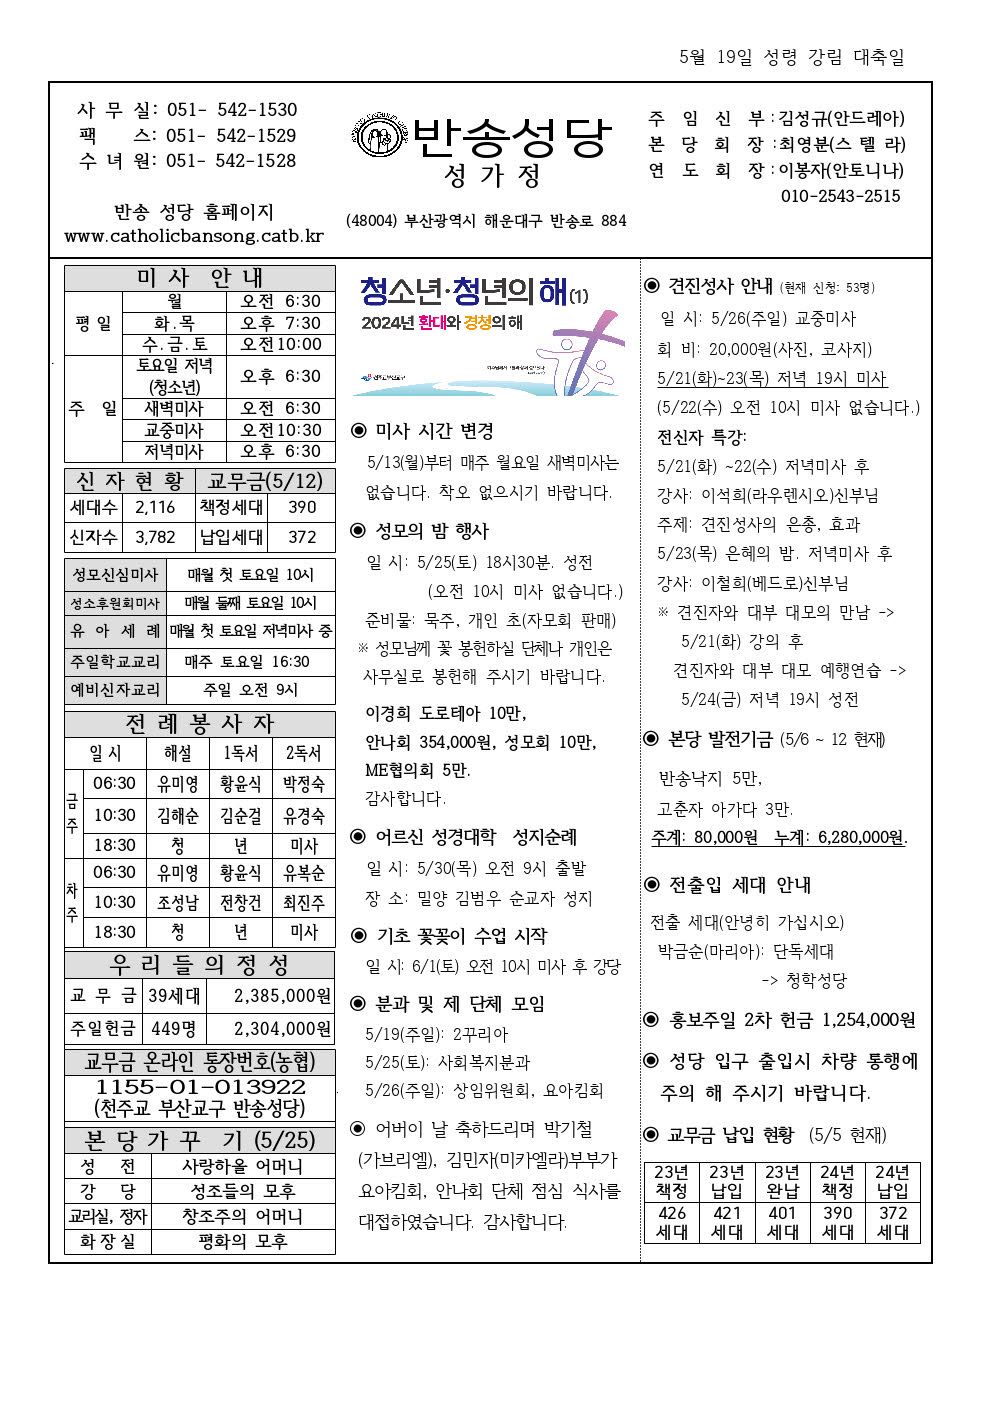 5월 19일 성령 강림 대축일
사 무 실: 051- 542-1530
팩 스: 051- 542-1529
수 녀 원: 051- 542-1528
반송 성당 홈페이지
www.catholicbansong.catb.kr
반송성당
성 가 정
(48004) 부산광역시 해운대구 반송로 884
주 임 신 부 : 김정규(안드레아)
본 당 회 장 : 최영분(스 텔 라)
연 도 회 장 : 이봉자(안토니나)
010-2543-2515
미 사 안 내
평 일 월 오전 6:30
화.목 오후 7:30
수.금.토 오전10:00
주 일 토요일 저녁 (청소년) 오후 6:30
새벽미사 오전 6:30
교중미사 오전10:30
저녁미사 오후 6:30
신 자 현 황 교무금(5/12)
세대수 2,116 책정세대 390
신자수 3,782 납입세대 372
성모신심미사 매월 첫 토요일 10시
성소후원회미사 매월 둘째 토요일 10시
유 아 세 례 매월 첫 토요일 저녁미사 중
주일학교교리 매주 토요일 16:30
예비신자교리 주일 오전 9시
전 례 봉 사 자
일 시 해설 1독서 2독서
금 주 06:30 유미영 황윤식 박정숙
10:30 김해순 김순걸 유경숙
18:30 청 년 미사
차 주 06:30 유미영 황윤식 유복순
10:30 조성남 전창건 최진주
18:30 청 년 미사
우 리 들 의 정 성
교 무 금 39세대 2,385,000원
주일헌금 449명 2,304,000원
교무금 온라인 통장번호(농협)
1155-01-013922
(천주교 부산교구 반송성당)
본 당 가 꾸 기 (5/25)
성 전 사랑하올 어머니
강 당 성조들의 모후
교리실, 정자 창조주의 어머니
화 장 실 평화의 모후
청소년·청년의 해(1)
2024년 환대와 경청의 해
천주교부산교구
◉ 미사 시간 변경
5/13(월)부터 매주 월요일 새벽미사는
없습니다. 착오 없으시기 바랍니다.
◉ 성모의 밤 행사
일 시: 5/25(토) 18시30분. 성전
(오전 10시 미사 없습니다.)
준비물: 묵주, 개인 초(자모회 판매)
※ 성모님께 꽃 봉헌하실 단체나 개인은
사무실로 봉헌해 주시기 바랍니다.
이경희 도로테아 10만,
안나회 354,000원, 성모회 10만,
ME협의회 5만.
감사합니다.
◉ 어르신 성경대학 성지순례
일 시: 5/30(목) 오전 9시 출발
장 소: 밀양 김범우 순교자 성지
◉ 기초 꽃꽂이 수업 시작
일 시: 6/1(토) 오전 10시 미사 후 강당
◉ 분과 및 제 단체 모임
5/19(주일): 2꾸리아
5/25(토): 사회복지분과
5/26(주일): 상임위원회, 요아킴회
◉ 어버이 날 축하드리며 박기철
(가브리엘), 김민자(미카엘라)부부가
요아킴회, 안나회 단체 점심 식사를
대접하였습니다. 감사합니다.
◉ 견진성사 안내 (현재 신청: 53명)
일 시: 5/26(주일) 교중미사
회 비: 20,000원(사진, 코사지)
5/21(화)~23(목) 저녁 19시 미사
(5/22(수) 오전 10시 미사 없습니다.)
전신자 특강:
5/21(화) ~22(수) 저녁미사 후
강사: 이석희(라우렌시오)신부님
주제: 견진성사의 은총, 효과
5/23(목) 은혜의 밤. 저녁미사 후
강사: 이철희(베드로)신부님
※ 견진자와 대부 대모의 만남 ->
5/21(화) 강의 후
견진자와 대부 대모 예행연습 ->
5/24(금) 저녁 19시 성전
◉ 본당 발전기금 (5/6 ~ 12 현재)
반송낙지 5만,
고춘자 아가다 3만.
주계: 80,000원 누계: 6,280,000원.
◉ 전출입 세대 안내
전출 세대(안녕히 가십시오)
박금순(마리아): 단독세대
-> 청학성당
◉ 홍보주일 2차 헌금 1,254,000원
◉ 성당 입구 출입시 차량 통행에
주의 해 주시기 바랍니다.
◉ 교무금 납입 현황 (5/5 현재)
23년 23년 23년 24년 24년
책정 납입 완납 책정 납입
426 421 401 390 372
세대 세대 세대 세대 세대